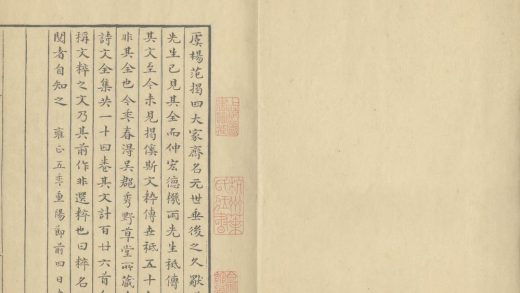 虞楊范揭四大家齊名元世垂後之久歐
先生已見其全而仲宏德機兩先生祗傳
其文至今未見揭傒斯文粹傳世祗五十
非其全也今季春得吳郡秀野草堂所藏
詩文全集共一十四卷其文計百廿六首
稱文粹之文乃其前作非選粹也曰粹名
閱者自知之 雍正五季重陽節前四日